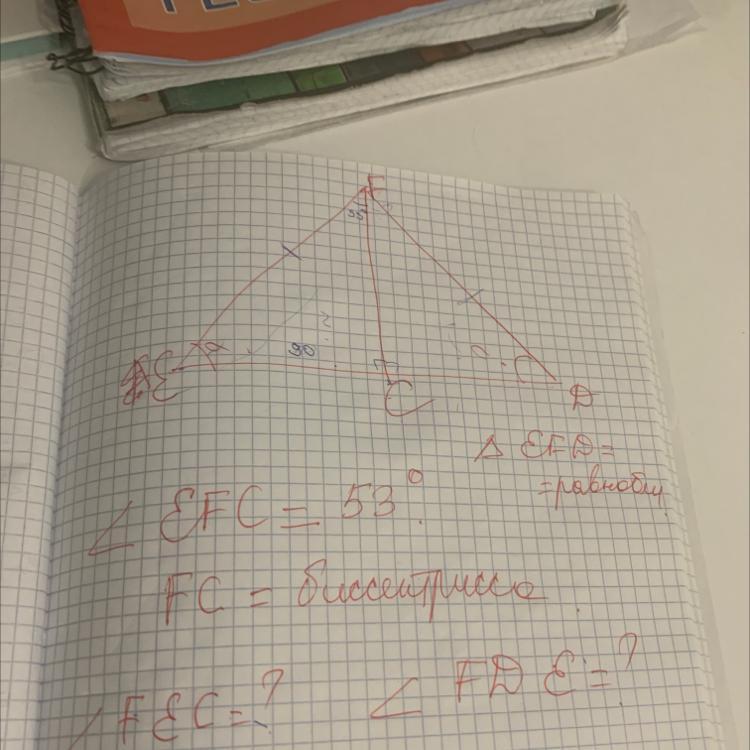 F
90
E
C
D
Δ EFD =
= равнобл
∠ EFC = 53°.
FC = биссентрисса
∠ FEC = ?
∠ FDE = ?